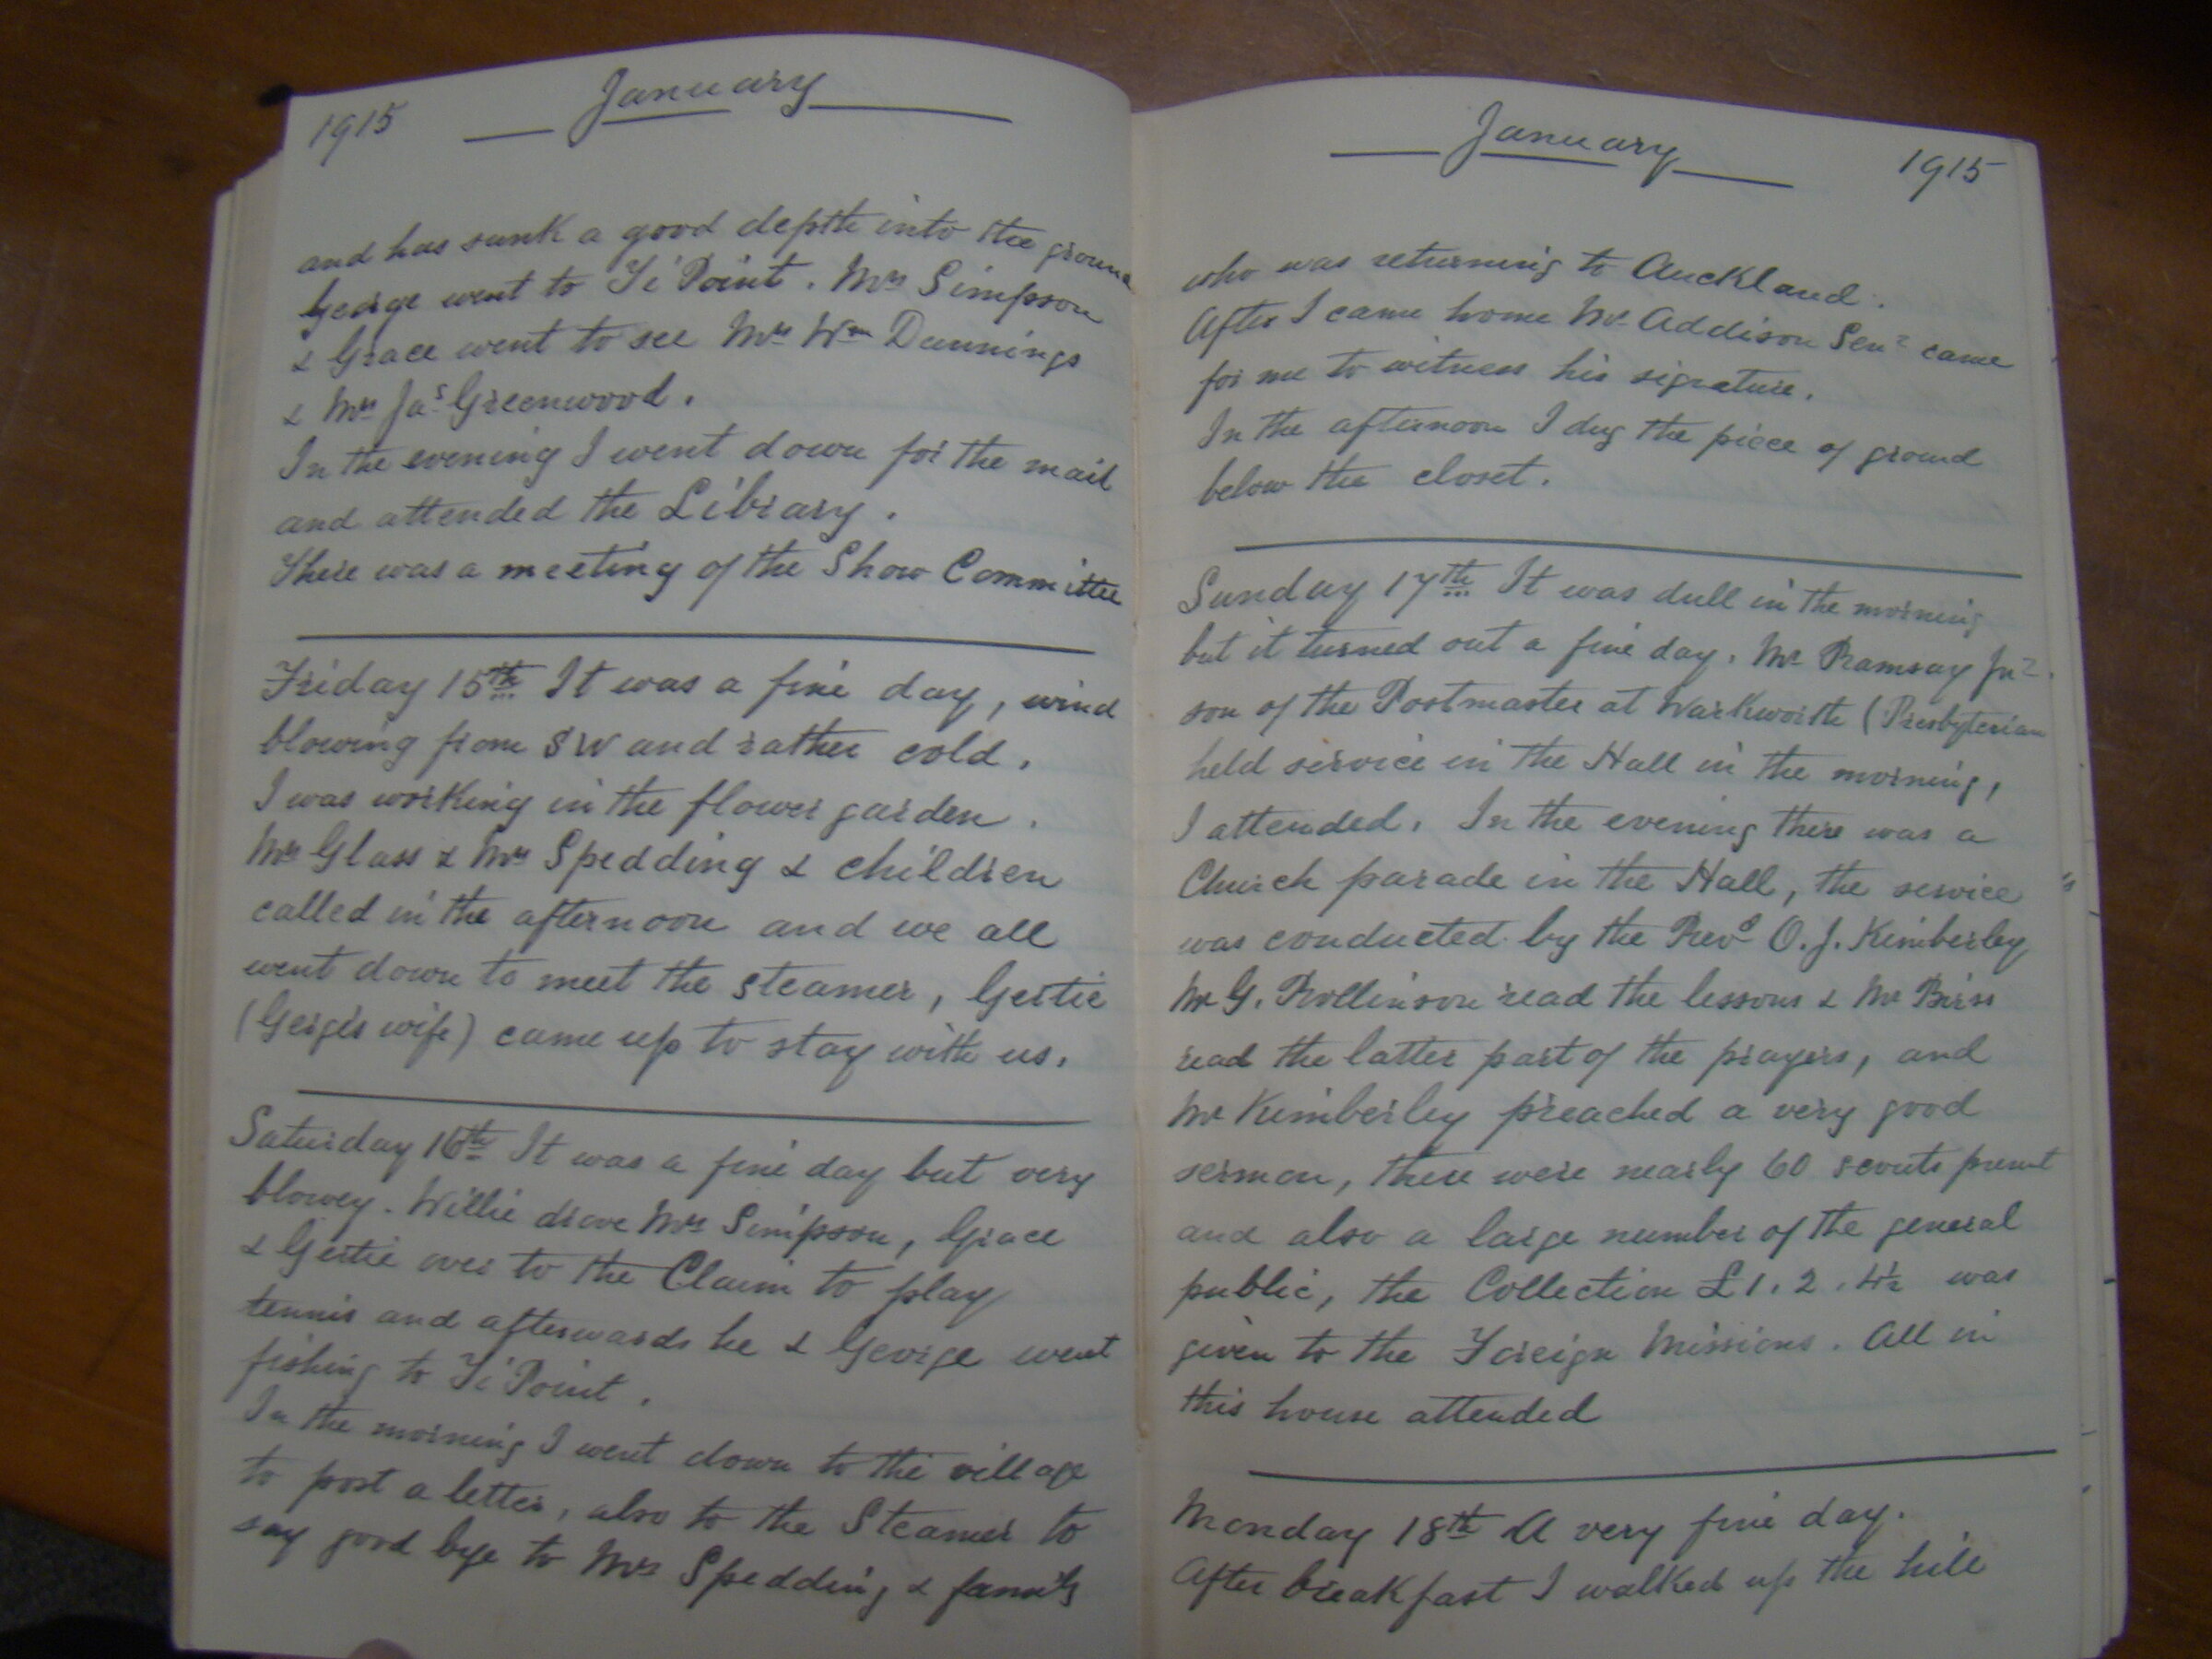 1915 January
and has sunk a good depth into the ground
George went to Ti Point. Mrs Simpson
& Grace went to see Mrs Wm Dunnings
& Mrs Jas Greenwood.
In the evening I went down for the mail
and attended the Library.
There was a meeting of the Show Committee
Friday 15th It was a fine day, wind
blowing from SW and rather cold.
I was working in the flower garden.
Mrs Glass & Mrs Spedding & children
called in the afternoon and we all
went down to meet the steamer, Gertie
(Georges wife) came up to stay with us.
Saturday 16th It was a fine day but very
blowey. Willie drove Mrs Simpson, Grace
& Gertie over to the Claim to play
tennis and afterwards he & George went
fishing to Ti Point.
In the morning I went down to the village
to post a letter, also to the Steamer to
say good bye to Mrs Spedding & family
January 1915
who was returning to Auckland.
After I came home Mr Addison Senr came
for me to witness his signature.
In the afternoon I dug the piece of ground
below the closet.
Sunday 17th It was dull in the morning
but it turned out a fine day. Mr Ramsay Jnr.
son of the Postmaster at Warkworth (Presbyterian
held service in the Hall in the morning,
I attended. In the evening there was a
Church parade in the Hall, the service
was conducted by the Revd O. J. Kimberley
Mr G. Rollinson read the lessons & Mr Birss
read the latter part of the prayers, and
Mr Kimberley preached a very good
sermon, there were nearly 60 scouts present
and also a large number of the general
public, the Collection £1. 2. 4½ was
given to the Foreign Missions. All in
this house attended
Monday 18th A very fine day.
After breakfast I walked up the hill